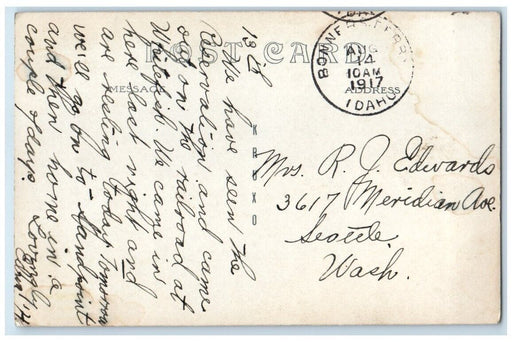 POST CARD
MESSAGE
ADDRESS
BONNERS FERRY
AUG
14
10 AM
1917
IDAHO
IDAHO
13th
We have seen the
reservation and came
out on the railroad at
Whitefish. We came in
here last night and
are resting today. Tomorrow
we'll go on to Sandpoint
and then home in a
couple of days.
Lovingly
Mrs. R. J. Edwards
3617 Meridian Ave.
Seattle.
Wash.